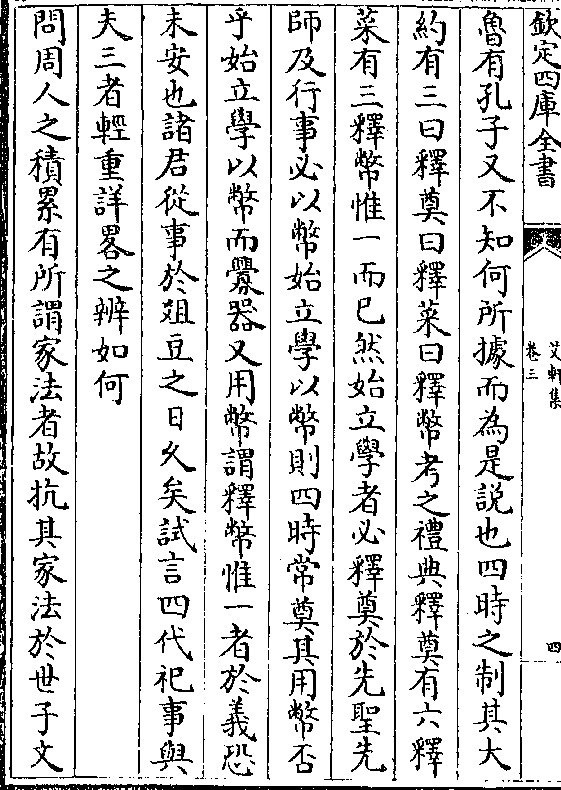 欽定四庫全書
艾軒集
卷三
四
魯有孔子又不知何所據而為是說也四時之制其大
約有三曰釋奠曰釋菜曰釋幣考之禮典釋奠有六釋
菜有三釋幣惟一而已然始立學者必釋奠於先聖先
師及行事必以幣始立學以幣則四時常奠其用幣否
乎始立學以幣而釁器又用幣謂釋幣惟一者於義恐
未安也諸君從事於爼豆之日久矣試言四代祀事與
夫三者輕重詳畧之辨如何
問周人之積累有所謂家法者故抗其家法於世子文